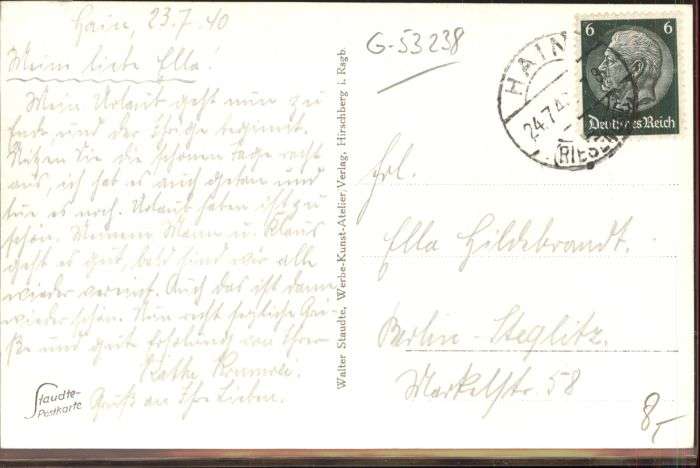 Hain, 23.7.40
Meine liebe Ella!
Mein Urlaub geht nun zu
Ende und der Ihrige beginnt.
Nützen Sie die schönen Tage recht
aus, ich hab es auch getan und
tue es noch. Urlaub haben ist zu
schön. Meinem Mann u. Klaus
geht es gut, bald sind wir alle
wieder vereint. Auch das ist dann
wieder schön. Nun recht herzliche Grü-
ße und gute Erholung von Ihrer
Käthe
Gruß an Ihre Lieben.
Staudte-
Postkarte
Walter Staudte, Werbe-Kunst-Atelier, Verlag, Hirschberg i. Rsgb.
G-53238
HAIN
24.7.40
(RIESEN
6 6
Deutsches Reich
Frl.
Ella Hildebrandt.
Berlin-Steglitz.
Markelstr. 58
8,-